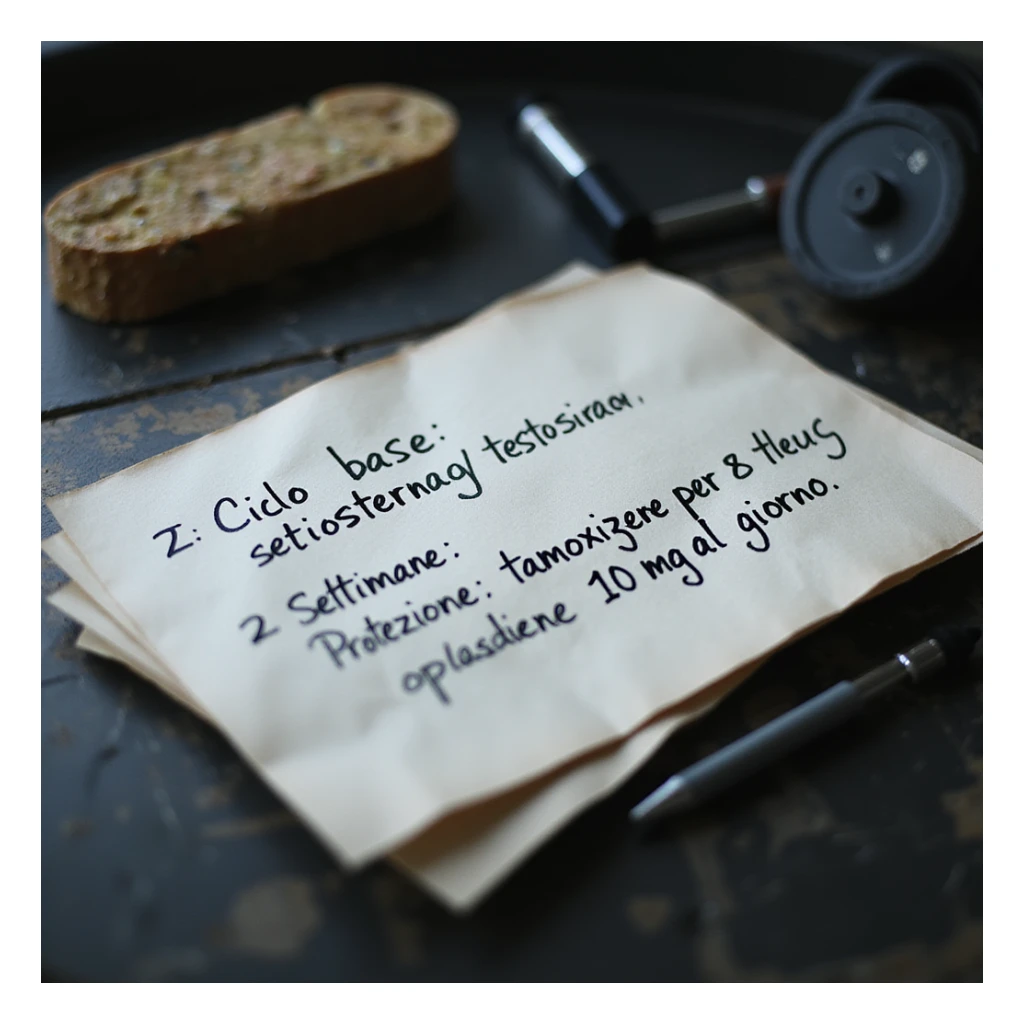 I: Ciclo base:
setiosternag/ testosiraa.
2 Settimane:
Protezione: tamoxizere per 8 tleus
oplasdiene 10 mg al giorno.